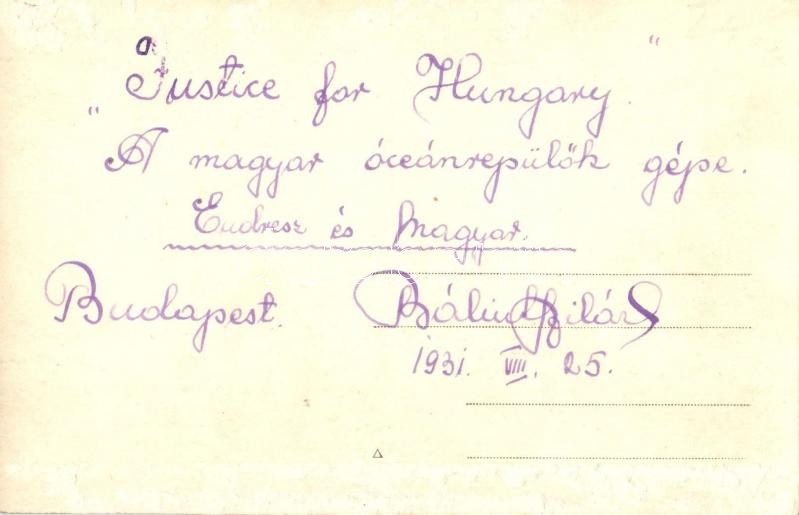 a
„Justice for Hungary."
A magyar óceánrepülők gépe.
Endresz és Magyar.
Budapest. Bálint Hilár
1931. VIII. 25.